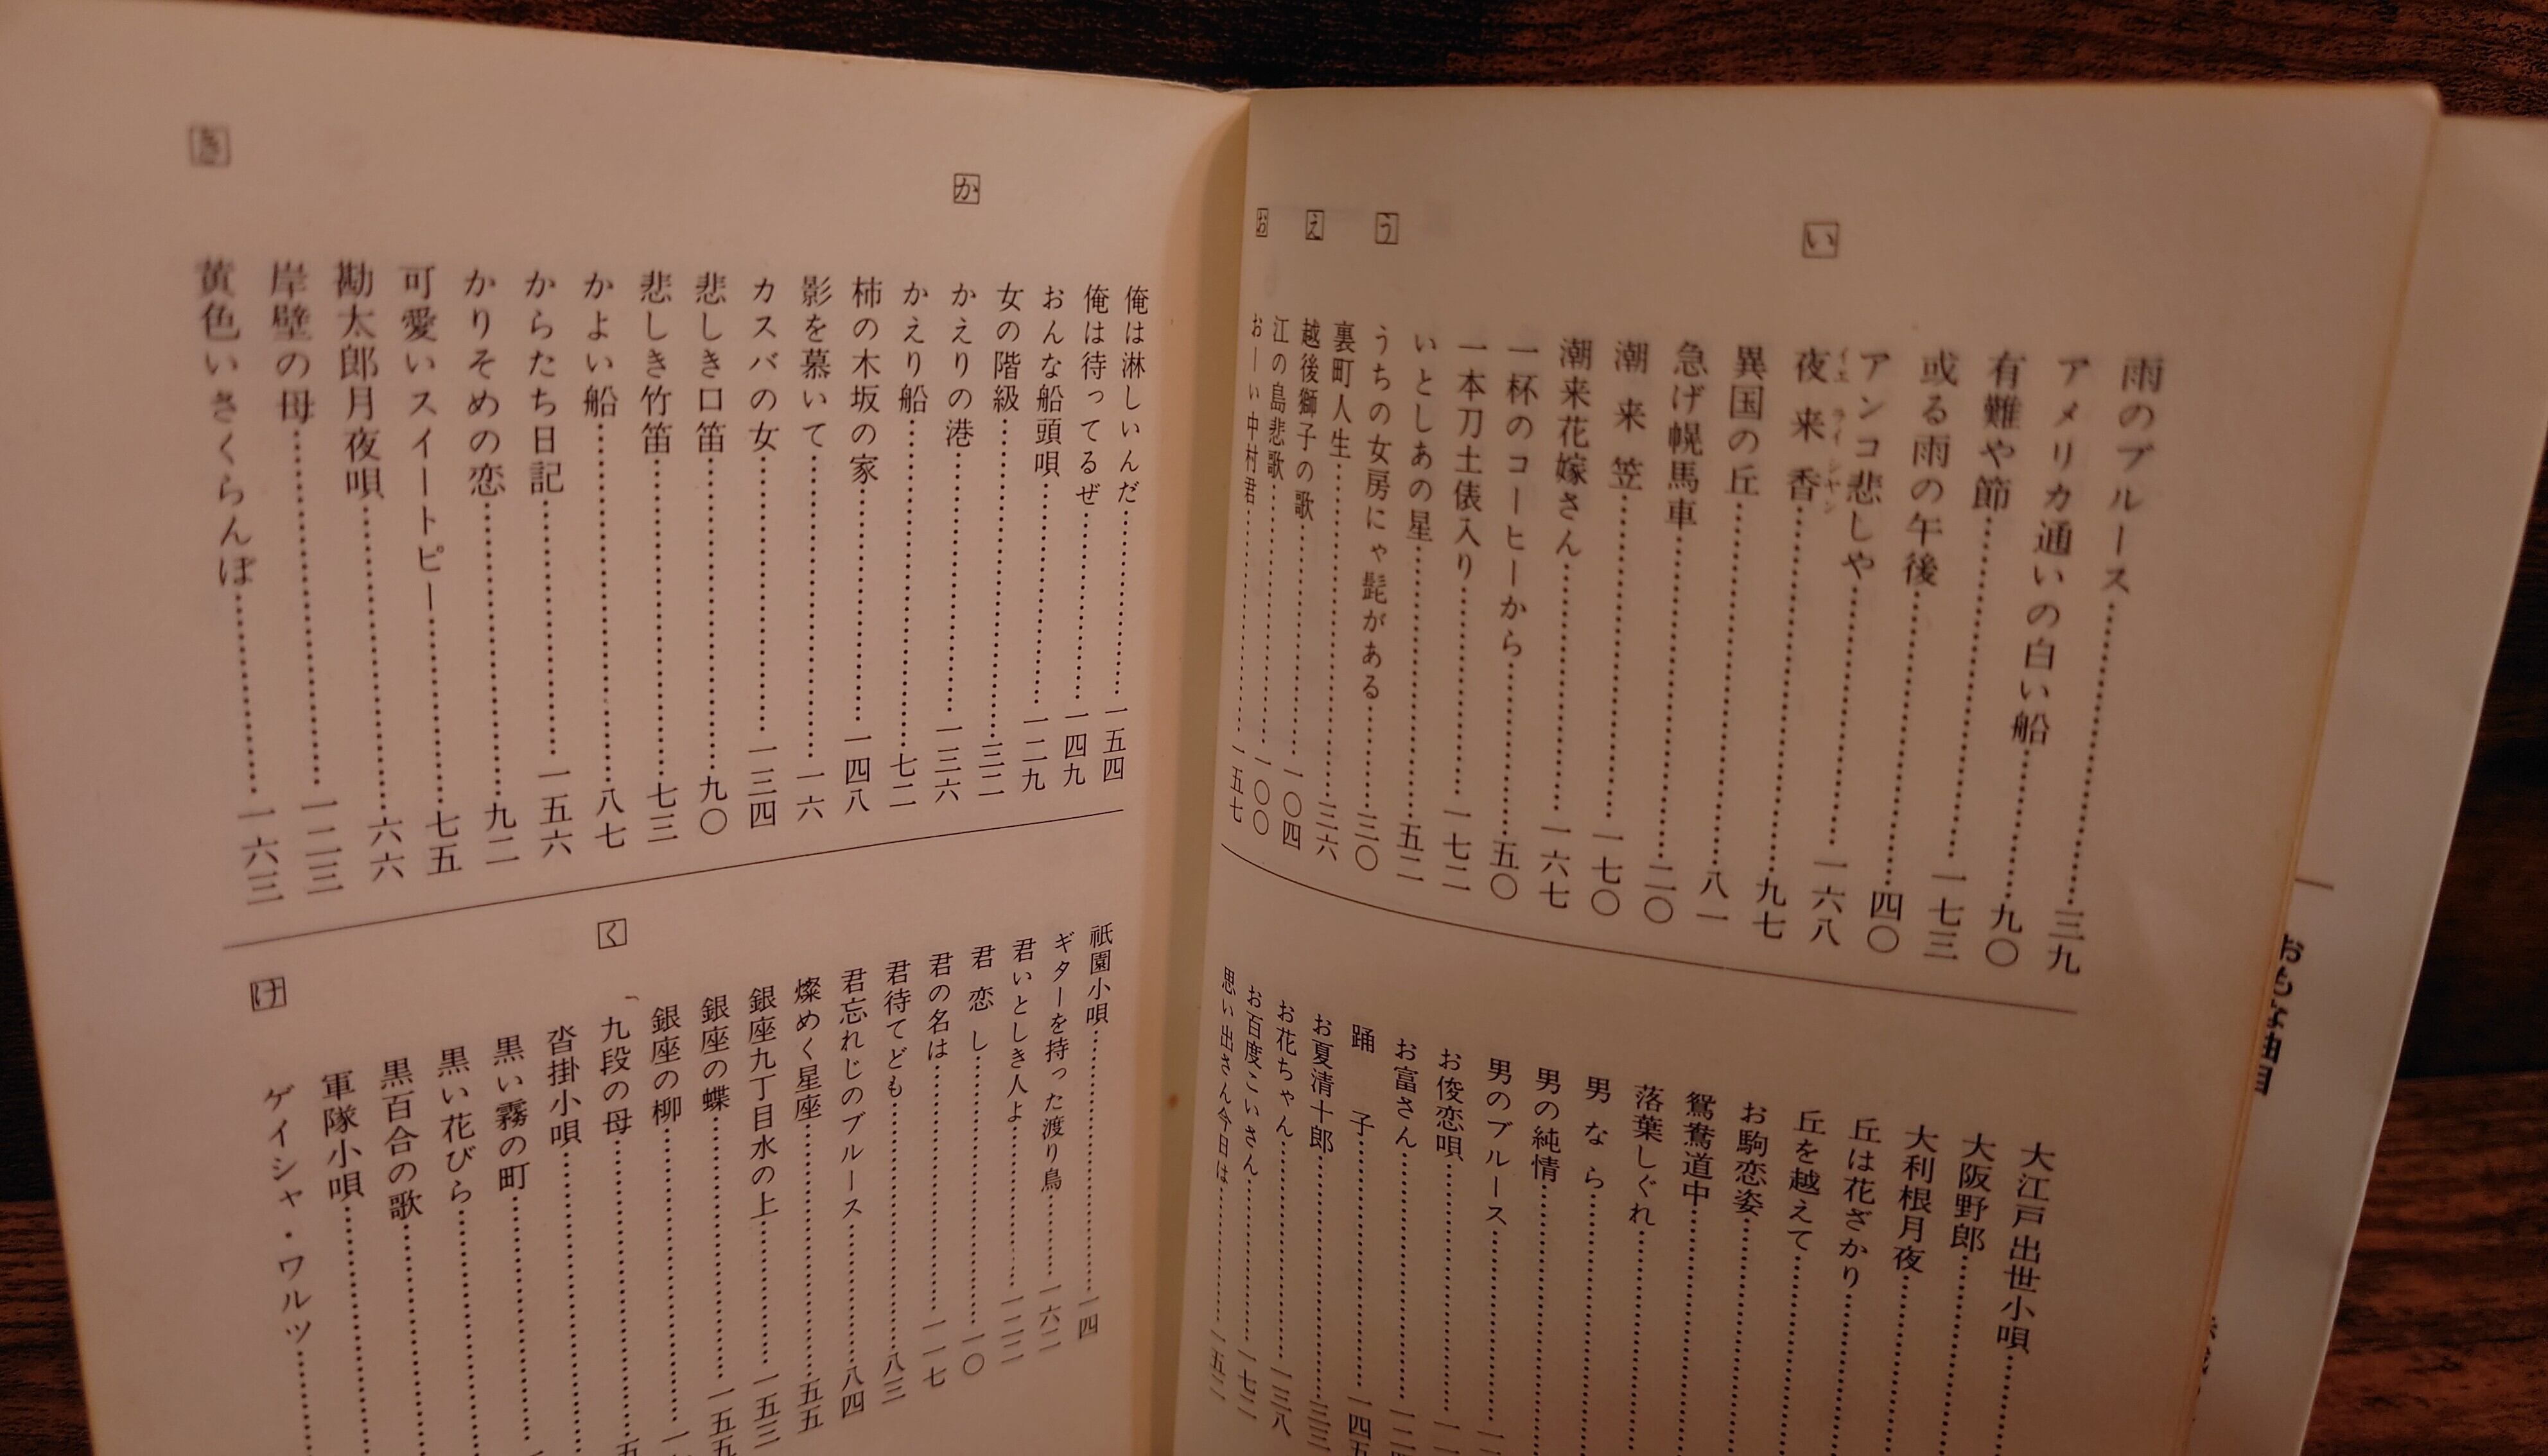 雨のブルース……三九
アメリカ通いの白い船……九〇
有難や節……一七三
或る雨の午後……四〇
アンコ悲しや……一六八
い
夜来香……九七
イエライシャン
異国の丘……八一
急げ幌馬車……二〇
潮来笠……一七〇
潮来花嫁さん……一六七
一杯のコーヒーから……五〇
一本刀土俵入り……一七二
いとしあの星……五二
う
うちの女房にゃ髭がある……三〇
裏町人生……三六
え
越後獅子の歌……一〇四
江の島悲歌……一〇〇
お
おーい中村君……一五七
大江戸出世小唄
大阪野郎
大利根月夜
丘は花ざかり
丘を越えて
お駒恋姿
鴛鴦道中
落葉しぐれ
男なら
男の純情
男のブルース
お俊恋唄
お富さん
踊子……一四五
お夏清十郎……三三
お花ちゃん……一三八
お百度こいさん……一七二
思い出さん今日は……一五二
俺は淋しいんだ……一五四
俺は待ってるぜ……一四九
おんな船頭唄……一二九
女の階級……三二
か
かえりの港……一三六
かえり船……七二
柿の木坂の家……一四八
影を慕いて……一六
カスバの女……一三四
悲しき口笛……九〇
悲しき竹笛……七三
かよい船……八七
からたち日記……一五六
かりそめの恋……九二
可愛いスイートピー……七五
勘太郎月夜唄……六六
岸壁の母……一二三
き
黄色いさくらんぼ……一六三
祇園小唄……一四
ギターを持った渡り鳥……一六二
君いとしき人よ……一二二
君恋し……一〇
君の名は……一一七
君待てども……八三
君忘れじのブルース……八四
燦めく星座……五五
銀座九丁目水の上……一五三
銀座の蝶……一五九
銀座の柳
く
九段の母
沓掛小唄
黒い霧の町
黒い花びら
黒百合の歌
軍隊小唄
け
ゲイシャ・ワルツ